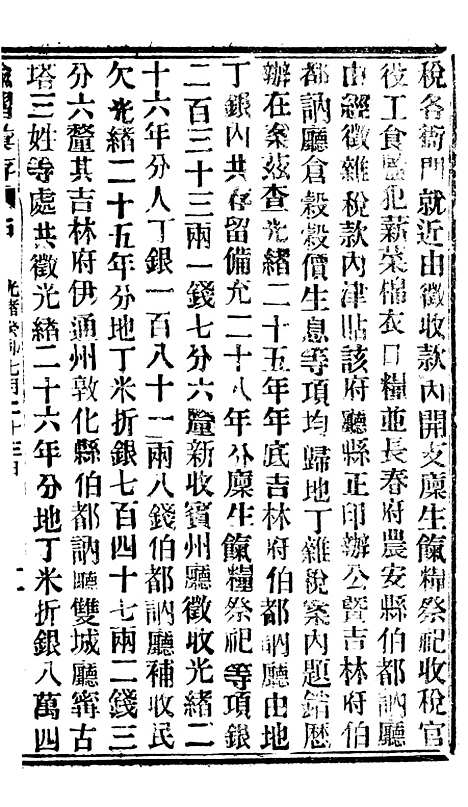 稅各衙門就近由徵收款內開支廩生餼糧祭祀收稅官
役工食監犯薪菜棉衣口糧並長春府農安縣伯都訥廳
由經徵雜稅款內津貼該府廳縣正印辦公暨吉林府伯
都訥廳倉穀穀價生息等項均歸地丁雜稅案內題錯歷
辦在案茲查光緒二十五年年底吉林府伯都訥廳由地
丁銀內共存留備充二十八年分廩生餼糧祭祀等項銀
二百三十三兩一錢七分六釐新收賓州廳徵收光緒二
十六年分人丁銀一百八十一兩八錢伯都訥廳補收民
欠光緒二十五年分地丁米折銀七百四十七兩二錢三
分六釐其吉林府伊通州敦化縣伯都訥廳雙城廳寗古
塔三姓等處共徵光緒二十六年分地丁米折銀八萬四
諭摺彙存 光緒癸卯七月二十三日